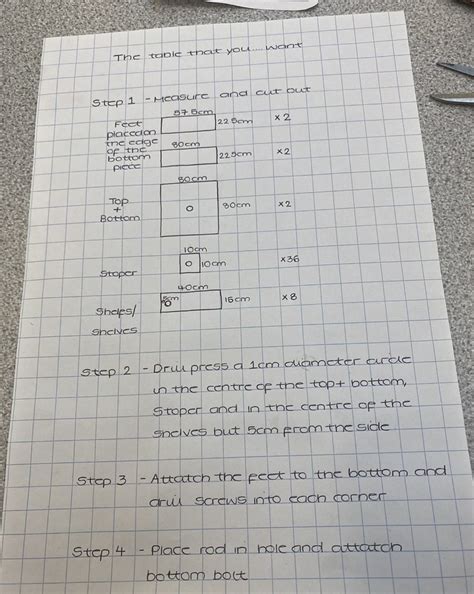 The table that you.... want
Step 1 - Measure and cut out
Feet
placed on
the edge
of the
bottom
piece
57.5cm
22.5cm
x2
80cm
22.5cm
x2
Top
+
Bottom
80cm
80cm
x2
Stoper
10cm
10cm
x36
Shelfs/
Shelves
40cm
5cm
15cm
x8
Step 2 - Drill press a 1cm diameter circle
in the centre of the top + bottom,
Stoper and in the centre of the
Shelves but 5cm from the side
Step 3 - Attatch the feet to the bottom and
drill screws into each corner
Step 4 - Place rod in hole and attatch
bottom bolt